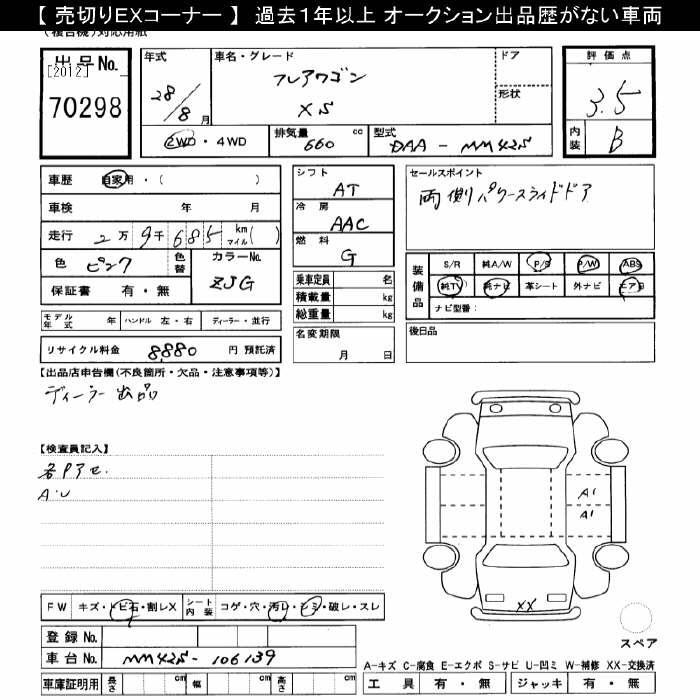 【 売切りEXコーナー 】 過去１年以上 オークション出品歴がない車両
(複合機)対応用紙
出品No.
[2012]
70298
年式
28/8月
車名・グレード
フレアワゴン
XS
ドア
形状
2WD・4WD
排気量 660 cc
型式 DAA-MM42S
評価点
3.5
内装 B
車歴 自家用・( )
車検 年 月
走行 2万9千685 km マイル( )
色 ピンク 色替
カラーNo. ZJG
保証書 有・無
シフト AT
冷房 AAC
燃料 G
乗車定員 名
積載量 kg
総重量 kg
名変期限
月 日
セールスポイント
両側パワースライドドア
装備品
S/R 純A/W P/S P/W ABS
純TV 純ナビ 革シート 外ナビ エアB
ナビ型番:
後日品
モデル年式 年 ハンドル 左・右 ディーラー・並行
リサイクル料金 8,880 円 預託済
【出品店申告欄(不良箇所・欠品・注意事項等)】
ディーラー出品
【検査員記入】
各Pアセ.
A・U
A1
A1
XX
FW キズ・トビ石・割レX シート内装 コゲ・穴・汚レ・シミ・破レ・スレ
登録No.
車台No. MM42S-106139
車庫証明用 長さ cm 幅 cm 高さ cm
スペア
A-キズ C-腐食 E-エクボ S-サビ U-凹ミ W-補修 XX-交換済
工具 有・無 ジャッキ 有・無